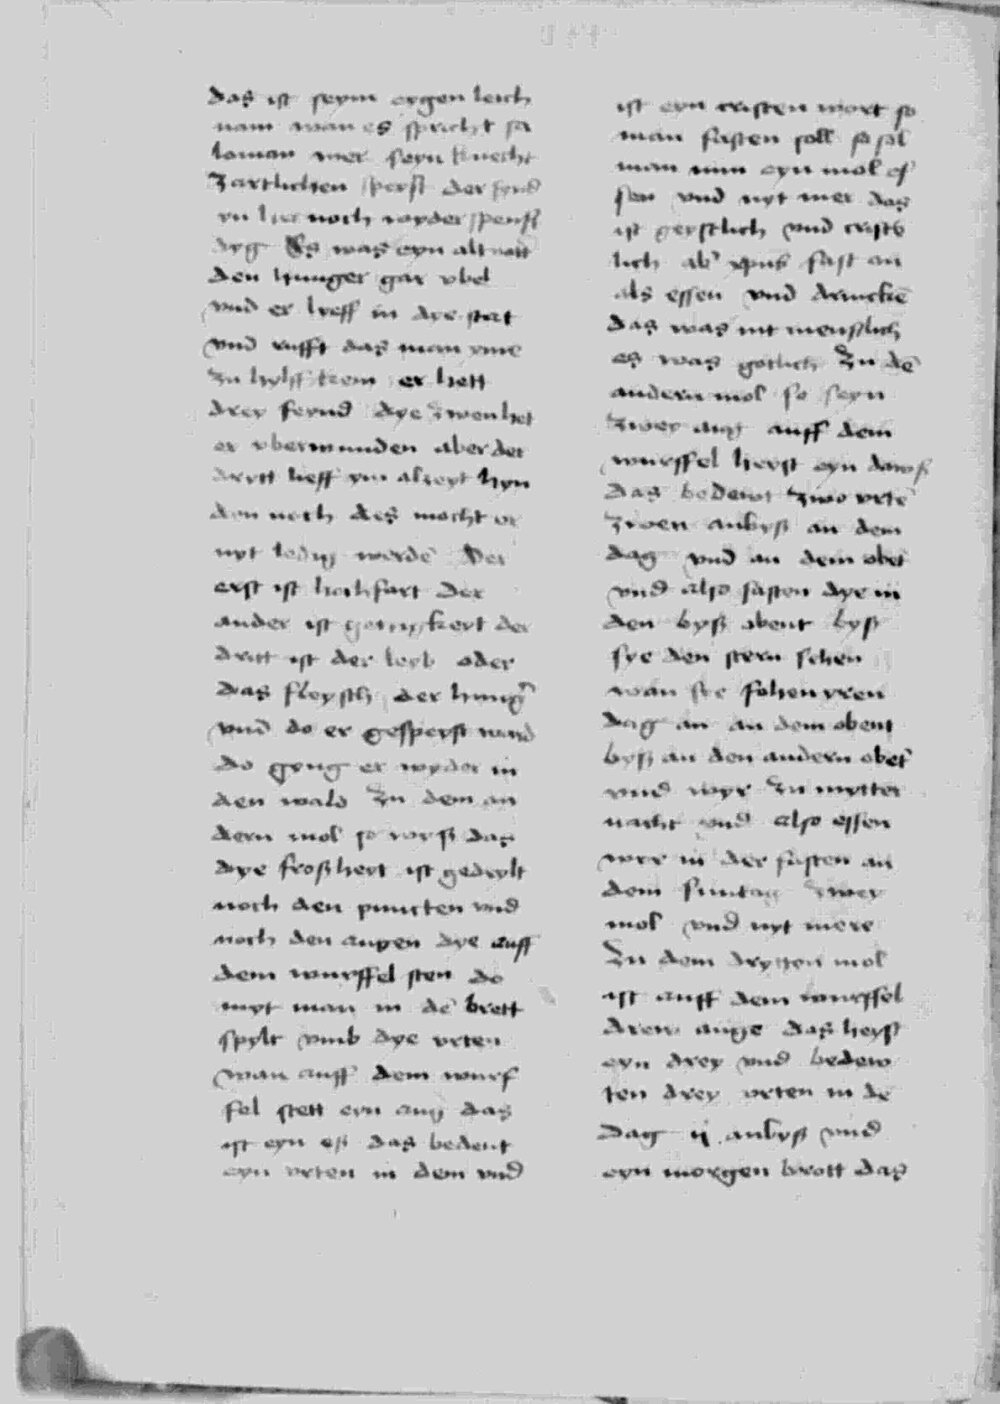 das ist seym eygen leich
nam wan es spricht sa
loman wer seyn knecht
zartlichen sperst der fynd
yn her noch wyder spenst
dyg Es was eyn alt vatt
den hunger gar vbel
vnd er lyeff in dye stat
vnd rufft das man yme
zu hylff kem er hett
drey feynd dye zwen het
er vberwunden aber der
drytt lieff ym alzeyt hyn
den noch des mocht er
nyt ledig werdē Der
erst ist hochfart der
ander ist geyttigkeyt der
dritt ist der leyb oder
das fleysch der hungr̄
vnd do er gespeyst ward
do gyng er wyder in
den wald Zu dem an
dern mol so wyß das
dye froßheyt ist gedeylt
noch den puncten vnd
noch den augen dye auff
dem wurffel sten do
myt man in dē brett
spylt vmb dye vrten
wan auff dem wurf
fel stett eyn aug das
ist eyn eß das bedeut
eyn vrten in dem vnd
ist eyn cristen wort so
man fasten soll so sol
man nun eyn mol es
sen vnd nyt mer das
ist geystlich vnd crist
lich ab' xpus fast an
als essen vnd drinckē
das was nit menslich
es was gotlich Zu dē
andern mol so seyn
zwey aug auff dem
wurffel heyst eyn dawß
das bedewt zwo vrtē
zwen anbyß an dem
dag vnd an dem obet
vnd also fasten dye in
den byß obent byß
sye den stern sehen
wan sye fohen yren
dag an an dem obent
byß an den andern obet
vnd wyr zu mytter
nacht vnd also essen
wyr in der fasten an
dem suntag zwey
mol vnd nyt mere
Zu dem drytten mol
ist auff dem wurffel
drew auge das heyst
eyn drey vnd bedew
ten drey vrten in dē
dag ij anbyß vnd
eyn morgen brott das